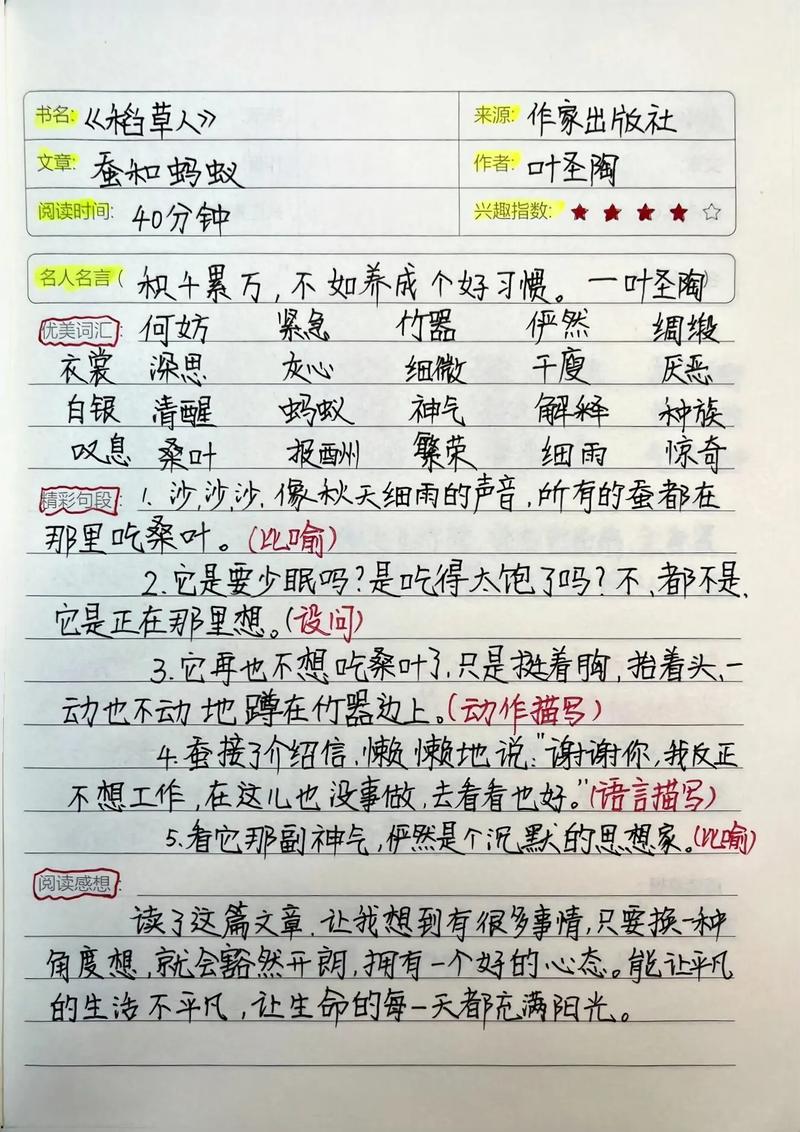 书名:《稻草人》 来源: 作家出版社
文章: 蚕和蚂蚁 作者: 叶圣陶
阅读时间: 40分钟 兴趣指数: ★ ★ ★ ★ ☆
名人名言( 积千累万,不如养成个好习惯。—叶圣陶)
优美词汇: 何妨 紧急 竹器 俨然 绸缎
衣裳 深思 灰心 细微 干瘦 厌恶
白银 清醒 蚂蚁 神气 解释 种族
叹息 桑叶 报酬 繁荣 细雨 惊奇
精彩句段: 1.沙,沙,沙.像秋天细雨的声音,所有的蚕都在
那里吃桑叶。(比喻)
2.它是要少眠吗?是吃得太饱了吗?不、都不是,
它是正在那里想。(设问)
3.它再也不想吃桑叶了,只是挺着胸,抬着头、一
动也不动地蹲在竹器边上。(动作描写)
4.蚕接了介绍信,懒懒地说:"谢谢你,我反正
不想工作,在这儿也没事做,去看看也好。"(语言描写)
5.看它那副神气,俨然是个沉默的思想家。(比喻)
阅读感想:
读了这篇文章.让我想到有很多事情,只要换一种
角度想,就会豁然开朗,拥有一个好的心态。能让平凡
的生活不平凡,让生命的每一天都充满阳光。